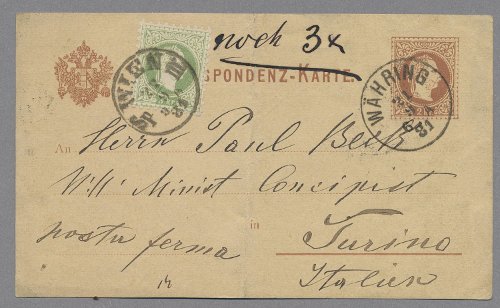 noch 3x
SPONDENZ-KARTE.
WIEN
WÄHRING
81
An Herrn Paul Beck
Minist Concipist
in Turino
posta ferma
Italien